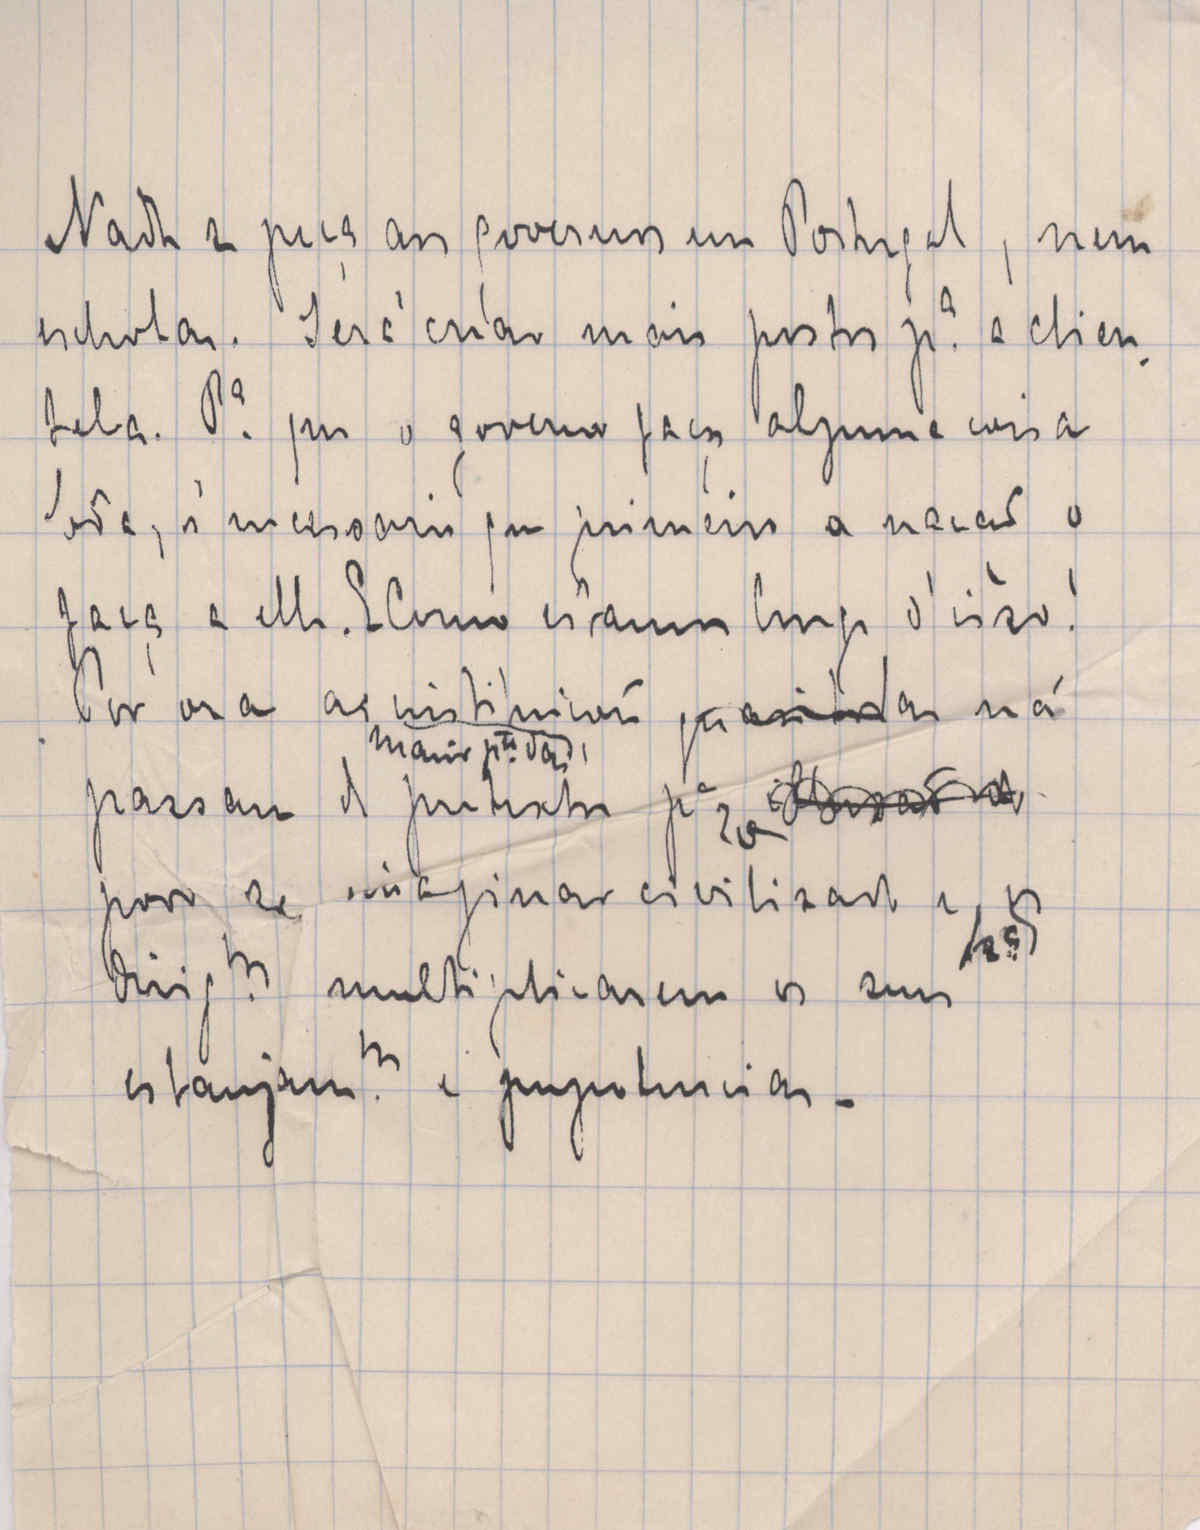 Nada se peça aos governos em Portugal, nem
escholas. Será criar mais postos p.ª a clien-
tela. P.ª que o governo faça alguma coisa
boa, é necessario que primeiro a nação o
faça a elle. E como estamos longe d'isso!
Por ora as instituições não
maior p.te das
passam de pretextos p.ª o
povo se imaginar civilisado e, os
dirig.tes multiplicarem os seus
esbanjam.tos e prepotencias_